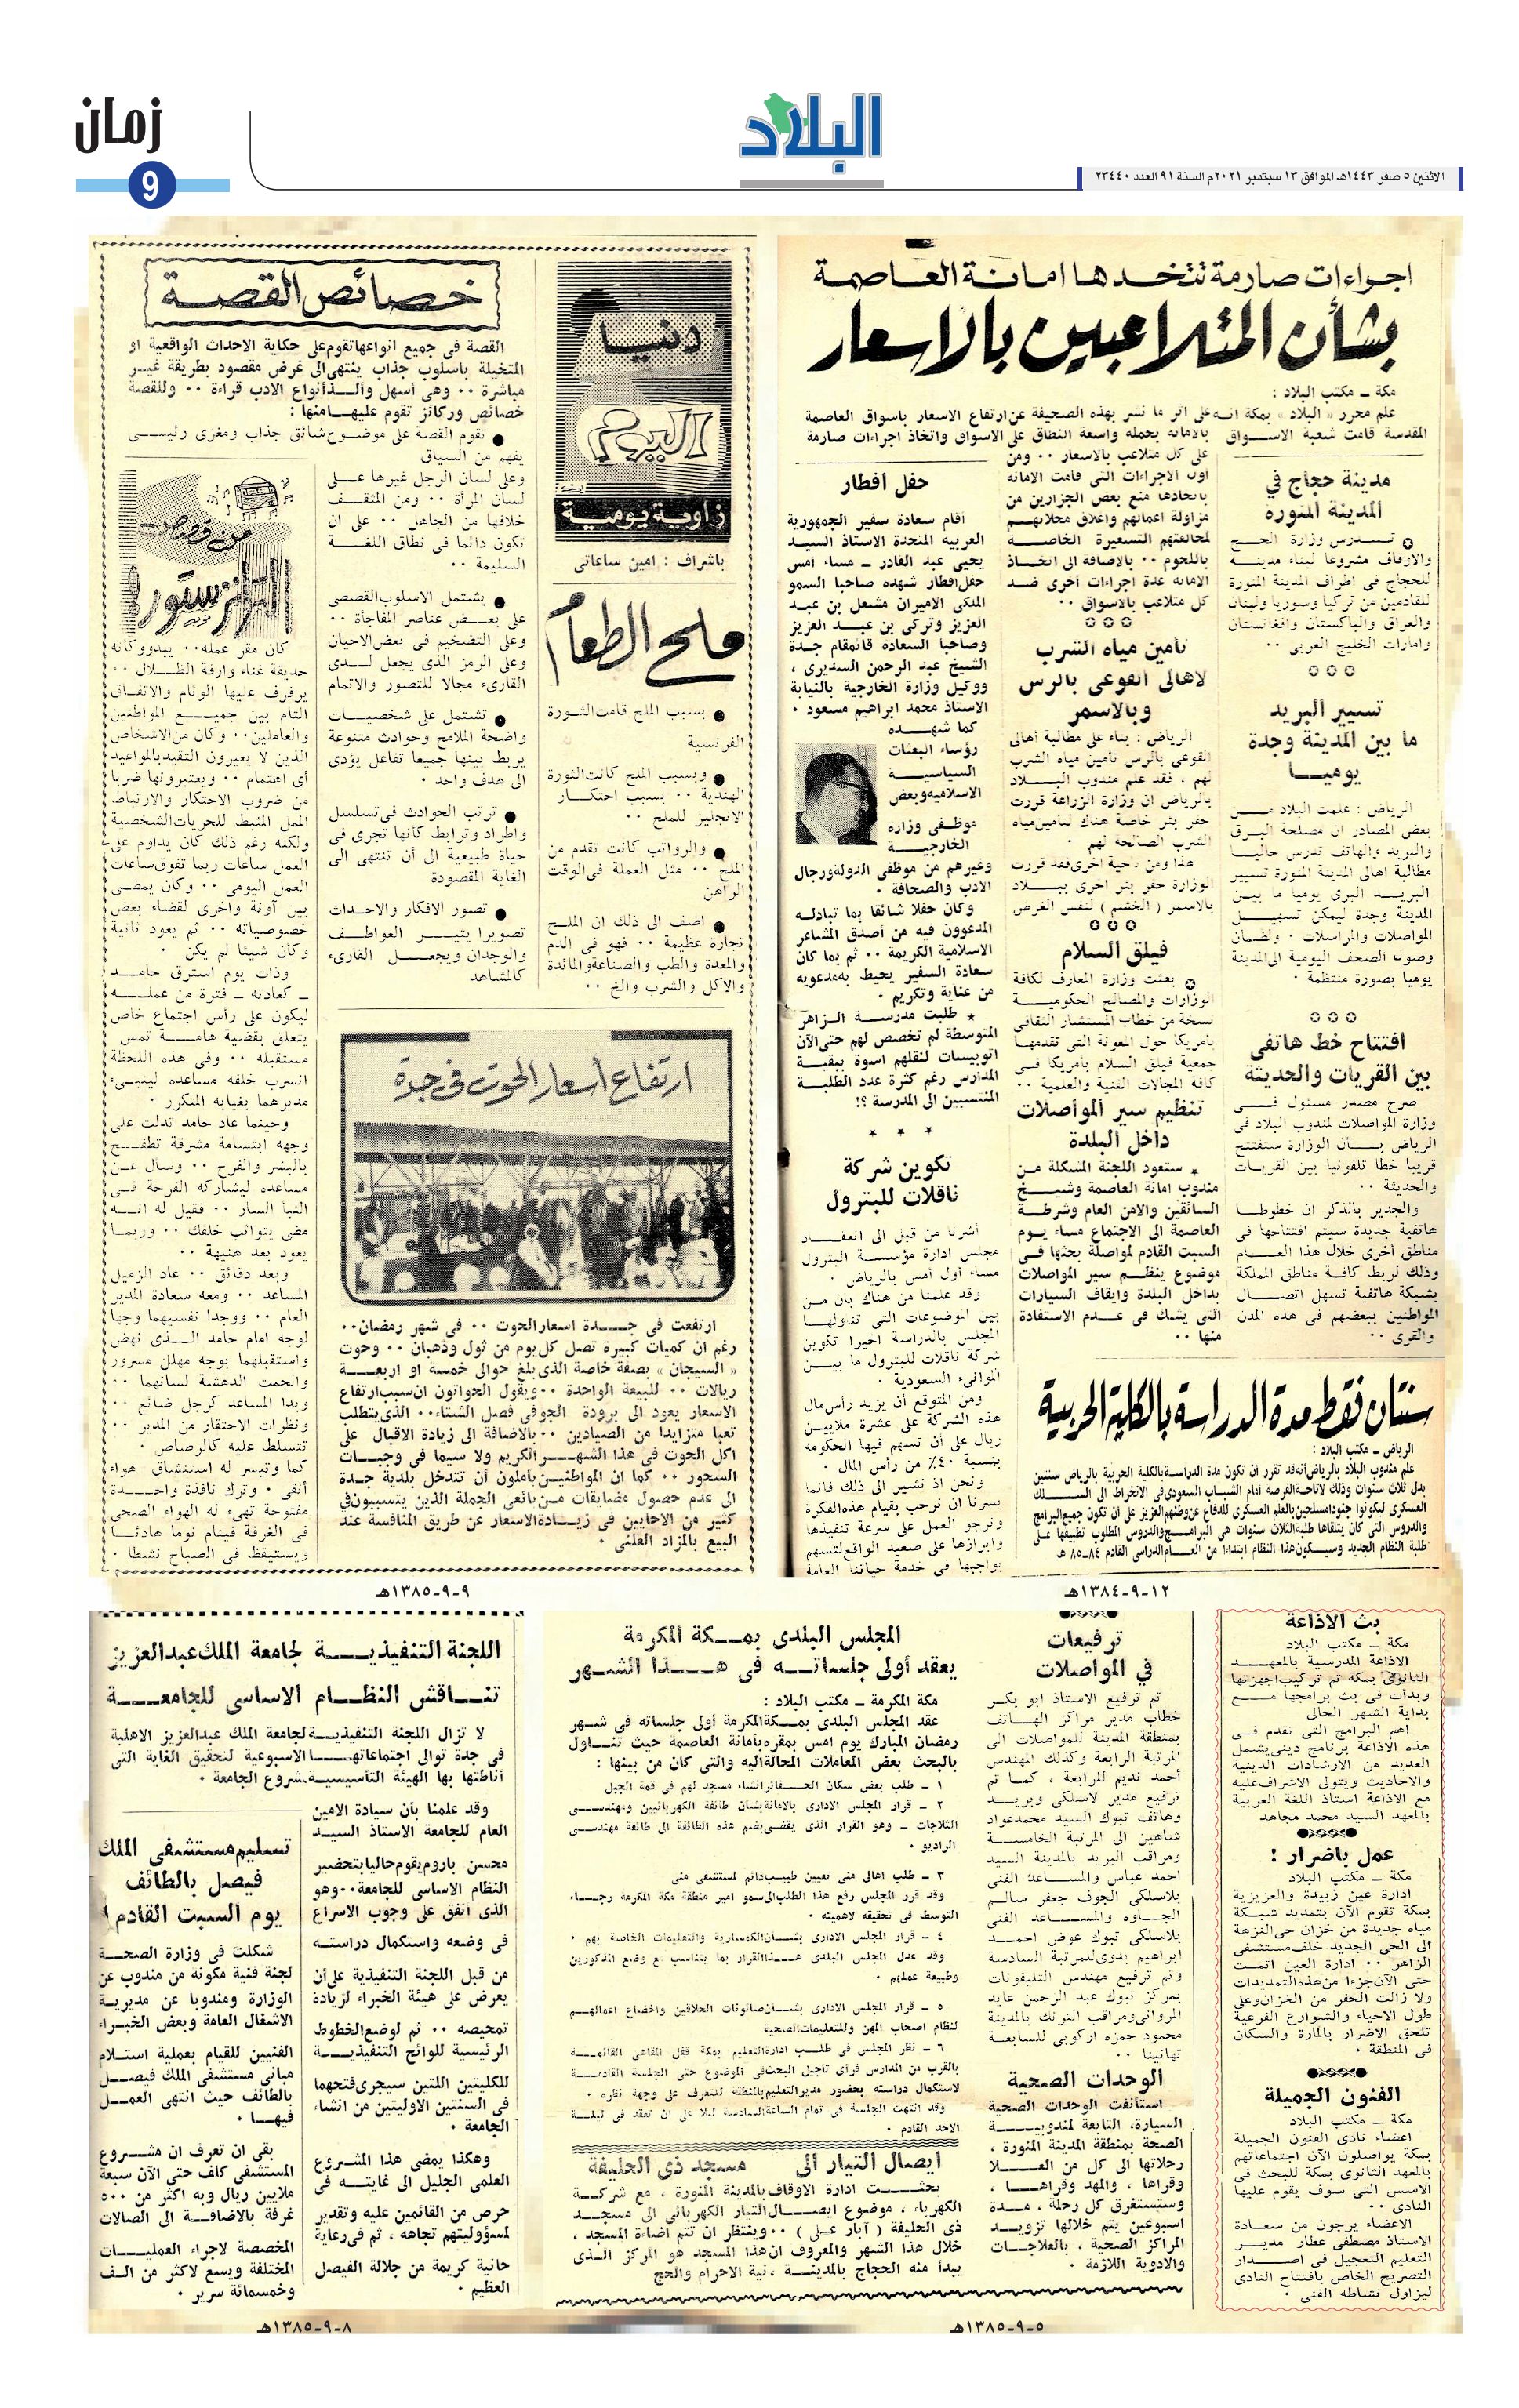 زمان
9
البلاد
الاثنين ٥ صفر ١٤٤٣هـ الموافق ١٣ سبتمبر ٢٠٢١م السنة ٩١ العدد ٢٣٤٤٠
اجراءات صارمة تتخذها امانة العاصمة
بشأن المتلاعبين بالاسعار
مكة ــ مكتب البلاد :
علم محرر « البلاد » بمكة انه على اثر ما نشر بهذه الصحيفة عن ارتفاع الاسعار باسواق العاصمة
المقدسة قامت شعبة الاسـواق بالامانه بحمله واسعة النطاق على الاسواق واتخاذ اجراءات صارمة
على كل متلاعب بالاسعار ٠٠ ومن
اول الاجراءات التى قامت الامانه
باتخاذها منع بعض الجزارين من
مزاولة اعمالهم واغلاق محلاتهم
لمخالفتهم التسعيرة الخاصة
باللحوم ٠٠ بالاضافة الى اتخاذ
الامانه عدة اجراءات أخرى ضد
كل متلاعب بالاسواق ٠٠
مدينة حجاج في
المدينة المنورة
تـدرس وزارة الحج
والاوقاف مشروعا لبناء مدينة
للحجاج فى اطراف المدينة المنورة
للقادمين من تركيا وسوريا ولبنان
والعراق والباكستان وافغانستان
وامارات الخليج العربى ٠٠
تسيير البريد
ما بين المدينة وجدة
يوميـا
الرياض : علمت البلاد من
بعض المصادر ان مصلحة البرق
والبريد والهاتف تدرس حاليا
مطالبة اهالى المدينة المنورة تسيير
البريد البرى يوميا ما بين
المدينة وجدة ليمكن تسهيل
المواصلات والمراسلات ٠ ولضمان
وصول الصحف اليومية الى المدينة
يوميا بصورة منتظمة ٠
افتتاح خط هاتفى
بين القريات والحديثة
صرح مصدر مسئول فى
وزارة المواصلات لمندوب البلاد فى
الرياض بـأن الوزارة ستفتتح
قريبا خطا تلفونيا بين القريات
والحديثة ٠٠
والجدير بالذكر ان خطوطا
هاتفية جديدة سيتم افتتاحها فى
مناطق أخرى خلال هذا العـام
وذلك لربط كافة مناطق المملكة
بشبكة هاتفية تسهل اتصال
المواطنين ببعضهم فى هذه المدن
والقرى ٠٠
تأمين مياه الشرب
لاهالى القوعى بالرس
وبالاسمر
الرياض : بناء على مطالبة أهالى
القوعى بالرس تأمين مياه الشرب
لهم ، فقد علم مندوب البلاد
بالرياض ان وزارة الزراعة قررت
حفر بئر خاصة هناك لتأمين مياه
الشرب الصالحة لهم ٠
هذا ومن ناحية اخرى فقد قررت
الوزارة حفر بئر اخرى ببلاد
بالاسمر ( الخثيم ) لنفس الغرض
فيلق السلام
بعثت وزارة المعارف لكافة
الوزارات والمصالح الحكومية
نسخة من خطاب المستشار الثقافى
بامريكا حول المعونة التى تقدمها
جمعية فيلق السلام بامريكا فى
كافة المجالات الفنية والعلمية ٠٠
تنظيم سير المواصلات
داخل البلدة
ستعود اللجنة المشكلة من
مندوب امانة العاصمة وشيخ
السائقين والامن العام وشرطة
العاصمة الى الاجتماع مساء يوم
السبت القادم لمواصلة بحثها فى
موضوع ينظم سير المواصلات
بداخل البلدة وايقاف السيارات
التى يشك فى عدم الاستفادة
منها ٠٠
حفل افطار
أقام سعادة سفير الجمهورية
العربيه المتحدة الاستاذ السيد
يحيى عبد القادر ــ مساء أمس
حفل افطار شهده صاحبا السمو
الملكى الاميران مشعل بن عبد
العزيز وتركى بن عبد العزيز
وصاحبا السعاده قائمقام جدة
الشيخ عبد الرحمن السديرى ،
ووكيل وزارة الخارجية بالنيابة
الاستاذ محمد ابراهيم مسعود ٠
كما شهده
رؤساء البعثات
السياسية
الاسلاميه وبعض
موظفى وزارة
الخارجية
وغيرهم من موظفى الدولة ورجال
الادب والصحافة ٠
وكان حفلا شائقا بما تبادله
المدعوون فيه من أصدق المشاعر
الاسلامية الكريمة ٠٠ ثم بما كان
سعادة السفير يحيط به مدعويه
من عناية وتكريم ٠
★ طلبت مدرسة الزاهر
المتوسطة لم تخصص لهم حتى الآن
اتوبيسات لنقلهم اسوة ببقية
المدارس رغم كثرة عدد الطلبة
المنتسبين الى المدرسة ؟!
تكوين شركة
ناقلات للبترول
أشرنا من قبل الى انعقـاد
مجلس ادارة مؤسسة البترول
مساء أول أمس بالرياض ٠
وقد علمنا من هناك بان من
بين الموضوعات التى تداولها
المجلس بالدراسة اخيرا تكوين
شركة ناقلات للبترول ما بين
الموانىء السعودية ٠
ومن المتوقع أن يزيد رأس مال
هذه الشركة على عشرة ملايين
ريال على أن تسهم فيها الحكومة
بنسبة ٤٠٪ من رأس المال ٠
ونحن اذ نشير الى ذلك فانما
يسرنا ان نرحب بقيام هذه الفكرة
ونرجو العمل على سرعة تنفيذها
وابرازها على صعيد الواقع لتسهم
بواجبها فى خدمة حياتنا العامة
سنتان فقط مدة الدراسة بالكلية الحربية
الرياض ــ مكتب البلاد :
علم مندوب البلاد بالرياض أنه قد تقرر ان تكون مدة الدراسة بالكلية الحربية بالرياض سنتين
بدل ثلاث سنوات وذلك لاتاحة الفرصة أمام الشباب السعودى فى الانخراط الى السلك
العسكرى ليكونوا جنودا مسلحين بالعلم العسكرى للدفاع عن وطنهم العزيز على ان تكون جميع البرامج
والدروس التى كان يتلقاها طلبة الثلاث سنوات هى البرامج والدروس المطلوب تطبيقها على
طلبة النظام الجديد وسيكون هذا النظام ابتداءا من العام الدراسى القادم ٨٤ــ٨٥ هـ
١٢-٩-١٣٨٤هـ
دنيا
اليوم
زاوية يومية
باشراف : امين ساعاتى
ملح الطعام
● بسبب الملح قامت الثورة
الفرنسية
● وبسبب الملح كانت الثورة
الهندية ٠٠ بسبب احتكار
الانجليز للملح ٠٠
● والرواتب كانت تقدم من
الملح ٠٠ مثل العملة فى الوقت
الراهن
● اضف الى ذلك ان الملح
تجارة عظيمة ٠٠ فهو فى الدم
والمعدة والطب والصناعة والمائدة
والاكل والشرب والخ ٠٠
خصائص القصة
القصة فى جميع انواعها تقوم على حكاية الاحداث الواقعية او
المتخيلة باسلوب جذاب ينتهى الى غرض مقصود بطريقة غير
مباشرة ٠٠ وهى أسهل والذ أنواع الادب قراءة ٠٠ وللقصة
خصائص وركائز تقوم عليها منها :
● تقوم القصة على موضوع شائق جذاب ومغزى رئيسى
يفهم من السياق
وعلى لسان الرجل غيرها على
لسان المرأة ٠٠ ومن المثقف
خلافها من الجاهل ٠٠ على ان
تكون دائما فى نطاق اللغة
السليمة ٠٠
● يشتمل الاسلوب القصصى
على بعض عناصر المفاجأة ٠٠
وعلى التضخيم فى بعض الاحيان
وعلى الرمز الذى يجعل لدى
القارىء مجالا للتصور والاتمام
● تشتمل على شخصيات
واضحة الملامح وحوادث متنوعة
يربط بينها جميعا تفاعل يؤدى
الى هدف واحد ٠
● ترتب الحوادث فى تسلسل
واطراد وترابط كانها تجرى فى
حياة طبيعية الى أن تنتهى الى
الغاية المقصودة
● تصور الافكار والاحداث
تصويرا يثير العواطف
والوجدان ويجعل القارىء
كالمشاهد
من قصص
الترانزستور
كان مقر عمله ٠٠ يبدو وكأنه
حديقة غناء وارفة الظلال ٠٠
يرفرف عليها الوئام والاتفاق
التام بين جميع المواطنين
والعاملين ٠٠ وكان من الاشخاص
الذين لا يعيرون التقيد بالمواعيد
أى اهتمام ٠٠ ويعتبرونها ضربا
من ضروب الاحتكار والارتباط
الممل المثبط للحريات الشخصية
ولكنه رغم ذلك كان يداوم على
العمل ساعات ربما تفوق ساعات
العمل اليومى ٠٠ وكان يمضى
بين آونة واخرى لقضاء بعض
خصوصياته ٠٠ ثم يعود ثانية
وكأن شيئا لم يكن ٠
وذات يوم استرق حامد
ــ كعادته ــ فترة من عمله
ليكون على رأس اجتماع خاص
يتعلق بقضية هامة تمس
مستقبله ٠٠ وفى هذه اللحظة
انسرب خلفه مساعده لينبىء
مديرهما بغيابه المتكرر ٠
وحينما عاد حامد تدلت على
وجهه ابتسامة مشرقة تطفح
بالبشر والفرح ٠٠ وسأل عن
مساعده ليشاركه الفرحة فى
النبأ السار ٠٠ فقيل له انه
مضى يتواثب خلفك ٠٠ وربما
يعود بعد هنيهة ٠٠
وبعد دقائق ٠٠ عاد الزميل
المساعد ٠٠ ومعه سعادة المدير
العام ٠٠ ووجدا نفسيهما وجها
لوجه امام حامد الذى نهض
واستقبلهما بوجه مهلل مسرور
والجمت الدهشة لسانهما ٠٠
وبدا المساعد كرجل ضائع ٠٠
ونظرات الاحتقار من المدير ٠٠
تتسلط عليه كالرصاص ٠
كما وتيسر له استنشاق هواء
أنقى ٠ وترك نافذة واحدة
مفتوحة تهىء له الهواء الصحى
فى الغرفة فينام نوما هادئا
ويستيقظ فى الصباح نشطا ٠
ارتفاع أسعار الحوت فى جدة
ارتفعت فى جدة اسعار الحوت ٠٠ فى شهر رمضان ٠٠
رغم ان كميات كبيرة تصل كل يوم من ثول وذهبان ٠٠ وحوت
« السيجان » بصفة خاصة الذى بلغ حوالى خمسة او اربعة
ريالات ٠٠ للبيعة الواحدة ٠٠ ويقول الحواتون ان سبب ارتفاع
الاسعار يعود الى برودة الجو فى فصل الشتاء ٠٠ الذى يتطلب
تعبا متزايدا من الصيادين ٠٠ بالاضافة الى زيادة الاقبال على
اكل الحوت فى هذا الشهر الكريم ولا سيما فى وجبات
السحور ٠٠ كما ان المواطنين يأملون أن تتدخل بلدية جدة
الى عدم حصول مضايقات من بائعى الجملة الذين يتسببون فى
كثير من الاحايين فى زيادة الاسعار عن طريق المنافسة عند
البيع بالمزاد العلنى ٠
٩-٩-١٣٨٥هـ
بث الاذاعة
مكة ــ مكتب البلاد
الاذاعة المدرسية بالمعهد
الثانوى بمكة تم تركيب اجهزتها
وبدأت فى بث برامجها مع
بداية الشهر الحالى
اهم البرامج التى تقدم فى
هذه الاذاعة برنامج دينى يشمل
العديد من الارشادات الدينية
والاحاديث ويتولى الاشراف عليه
مع الاذاعة استاذ اللغة العربية
بالمعهد السيد محمد مجاهد
عمل باضرار !
مكة ــ مكتب البلاد
ادارة عين زبيدة والعزيزية
بمكة تقوم الآن بتمديد شبكة
مياه جديدة من خزان حى النزهة
الى الحى الجديد خلف مستشفى
الزاهر ٠٠ ادارة العين اتمت
حتى الآن جزءا من هذه التمديدات
ولا زالت الحفر من الخزان وعلى
طول الاحياء والشوارع الفرعية
تلحق الاضرار بالمارة والسكان
فى المنطقة ٠
الفنون الجميلة
مكة ــ مكتب البلاد
اعضاء نادى الفنون الجميلة
بمكة يواصلون الآن اجتماعاتهم
بالمعهد الثانوى بمكة للبحث فى
الاسس التى سوف يقوم عليها
النادى ٠٠
الاعضاء يرجون من سعادة
الاستاذ مصطفى عطار مدير
التعليم التعجيل فى اصدار
التصريح الخاص بافتتاح النادى
ليزاول نشاطه الفنى ٠
ترفيعات
في المواصلات
تم ترفيع الاستاذ ابو بكر
خطاب مدير مراكز الهاتف
بمنطقة المدينة للمواصلات الى
المرتبة الرابعة وكذلك المهندس
أحمد نديم للرابعة ، كما تم
ترفيع مدير لاسلكى وبريد
وهاتف تبوك السيد محمد عواد
شاهين الى المرتبة الخامسة
ومراقب البريد بالمدينة السيد
احمد عباس والمساعد الفنى
بلاسلكى الجوف جعفر سالم
الجاوه والمساعد الفنى
بلاسلكى تبوك عوض احمد
ابراهيم بدوى للمرتبة السادسة
وتم ترفيع مهندس التليفونات
بمركز تبوك عبد الرحمن عايد
المروانى ومراقب الترنك بالمدينة
محمود حمزه اركوبى للسابعة
تهانينا ٠٠
الوحدات الصحية
استأنفت الوحدات الصحية
السيارة، التابعة لمندوبية
الصحة بمنطقة المدينة المنورة ،
رحلاتها الى كل من العلا
وقراها ، والمهد وقراها ،
وستستغرق كل رحلة ، مدة
اسبوعين يتم خلالها تزويد
المراكز الصحية ، بالعلاجات
والادوية اللازمة ٠
المجلس البلدى بمكة المكرمة
يعقد أولى جلساته فى هذا الشهر
مكة المكرمة ــ مكتب البلاد :
عقد المجلس البلدى بمكة المكرمة أولى جلساته فى شهر
رمضان المبارك يوم امس بمقره بأمانة العاصمة حيث تناول
بالبحث بعض المعاملات المحالة اليه والتى كان من بينها :
١ ــ طلب بعض سكان الحفائر انشاء مسجد لهم فى قمة الجبل
٢ ــ قرار المجلس الادارى بالامانة بشأن طائفة الكهربائيين ومهندسى
الثلاجات ــ وهو القرار الذى يقضى بضم هذه الطائفة الى طائفة مهندسى
الراديو ٠
٣ ــ طلب اهالى منى تعيين طبيب دائم لمستشفى منى
وقد قرر المجلس رفع هذا الطلب الى سمو امير منطقة مكة المكرمة رجاء
التوسط فى تحقيقه لاهميته ٠
٤ ــ قرار المجلس الادارى بشأن الكمسارية والتعليمات الخاصة بهم ٠
وقد عدل المجلس البلدى هذا القرار بما يتناسب مع وضع المذكورين
وطبيعة عملهم ٠
٥ ــ قرار المجلس الادارى بشأن صالونات الحلاقين واخضاع اعمالهم
لنظام اصحاب المهن وللتعليمات الصحية
٦ ــ نظر المجلس فى طلب ادارة التعليم بمكة قفل المقاهى القائمة
بالقرب من المدارس فرأى تأجيل البحث فى الموضوع حتى الجلسة القادمة
لاستكمال دراسته بحضور مدير التعليم بالمنطقة للتعرف على وجهة نظره ٠
وقد انتهت الجلسة فى تمام الساعة السادسة ليلا على ان تعقد فى ليلة
الاحد القادم ٠
ايصال التيار الى مسجد ذى الحليفة
بحثت ادارة الاوقاف بالمدينة المنورة ، مع شركة
الكهرباء ، موضوع ايصال التيار الكهربائى الى مسجد
ذى الحليفة ( آبار على ) ٠٠ وينتظر ان تتم اضاءة المسجد ،
خلال هذا الشهر والمعروف ان هذا المسجد هو المركز الذى
يبدأ منه الحجاج بالمدينة ، نية الاحرام والحج
٥-٩-١٣٨٥هـ
اللجنة التنفيذية لجامعة الملك عبد العزيز
تناقش النظام الاساسى للجامعة
لا تزال اللجنة التنفيذية لجامعة الملك عبد العزيز الاهلية
فى جدة توالى اجتماعاتها الاسبوعية لتحقيق الغاية التى
أناطتها بها الهيئة التأسيسية لمشروع الجامعة ٠
وقد علمنا بأن سيادة الامين
العام للجامعة الاستاذ السيد
محسن باروم يقوم حاليا بتحضير
النظام الاساسى للجامعة ٠٠ وهو
الذى اتفق على وجوب الاسراع
فى وضعه واستكمال دراسته
من قبل اللجنة التنفيذية على أن
يعرض على هيئة الخبراء لزيادة
تمحيصه ٠٠ ثم لوضع الخطوط
الرئيسية للوائح التنفيذية
للكليتين اللتين سيجرى فتحهما
فى السنتين الاوليتين من انشاء
الجامعة ٠
وهكذا يمضى هذا المشروع
العلمى الجليل الى غايته فى
حرص من القائمين عليه وتقدير
لمسؤوليتهم تجاهه ، ثم فى رعاية
حانية كريمة من جلالة الفيصل
العظيم ٠
تسليم مستشفى الملك
فيصل بالطائف
يوم السبت القادم
شكلت فى وزارة الصحة
لجنة فنية مكونه من مندوب عن
الوزارة ومندوبا عن مديرية
الاشغال العامة وبعض الخبراء
الفنيين للقيام بعملية استلام
مبانى مستشفى الملك فيصل
بالطائف حيث انتهى العمل
فيها ٠
بقى ان تعرف ان مشروع
المستشفى كلف حتى الآن سبعة
ملايين ريال وبه اكثر من ٥٠٠
غرفة بالاضافة الى الصالات
المخصصة لاجراء العمليات
المختلفة ويسع لاكثر من الف
وخمسمائة سرير ٠
٨-٩-١٣٨٥هـ